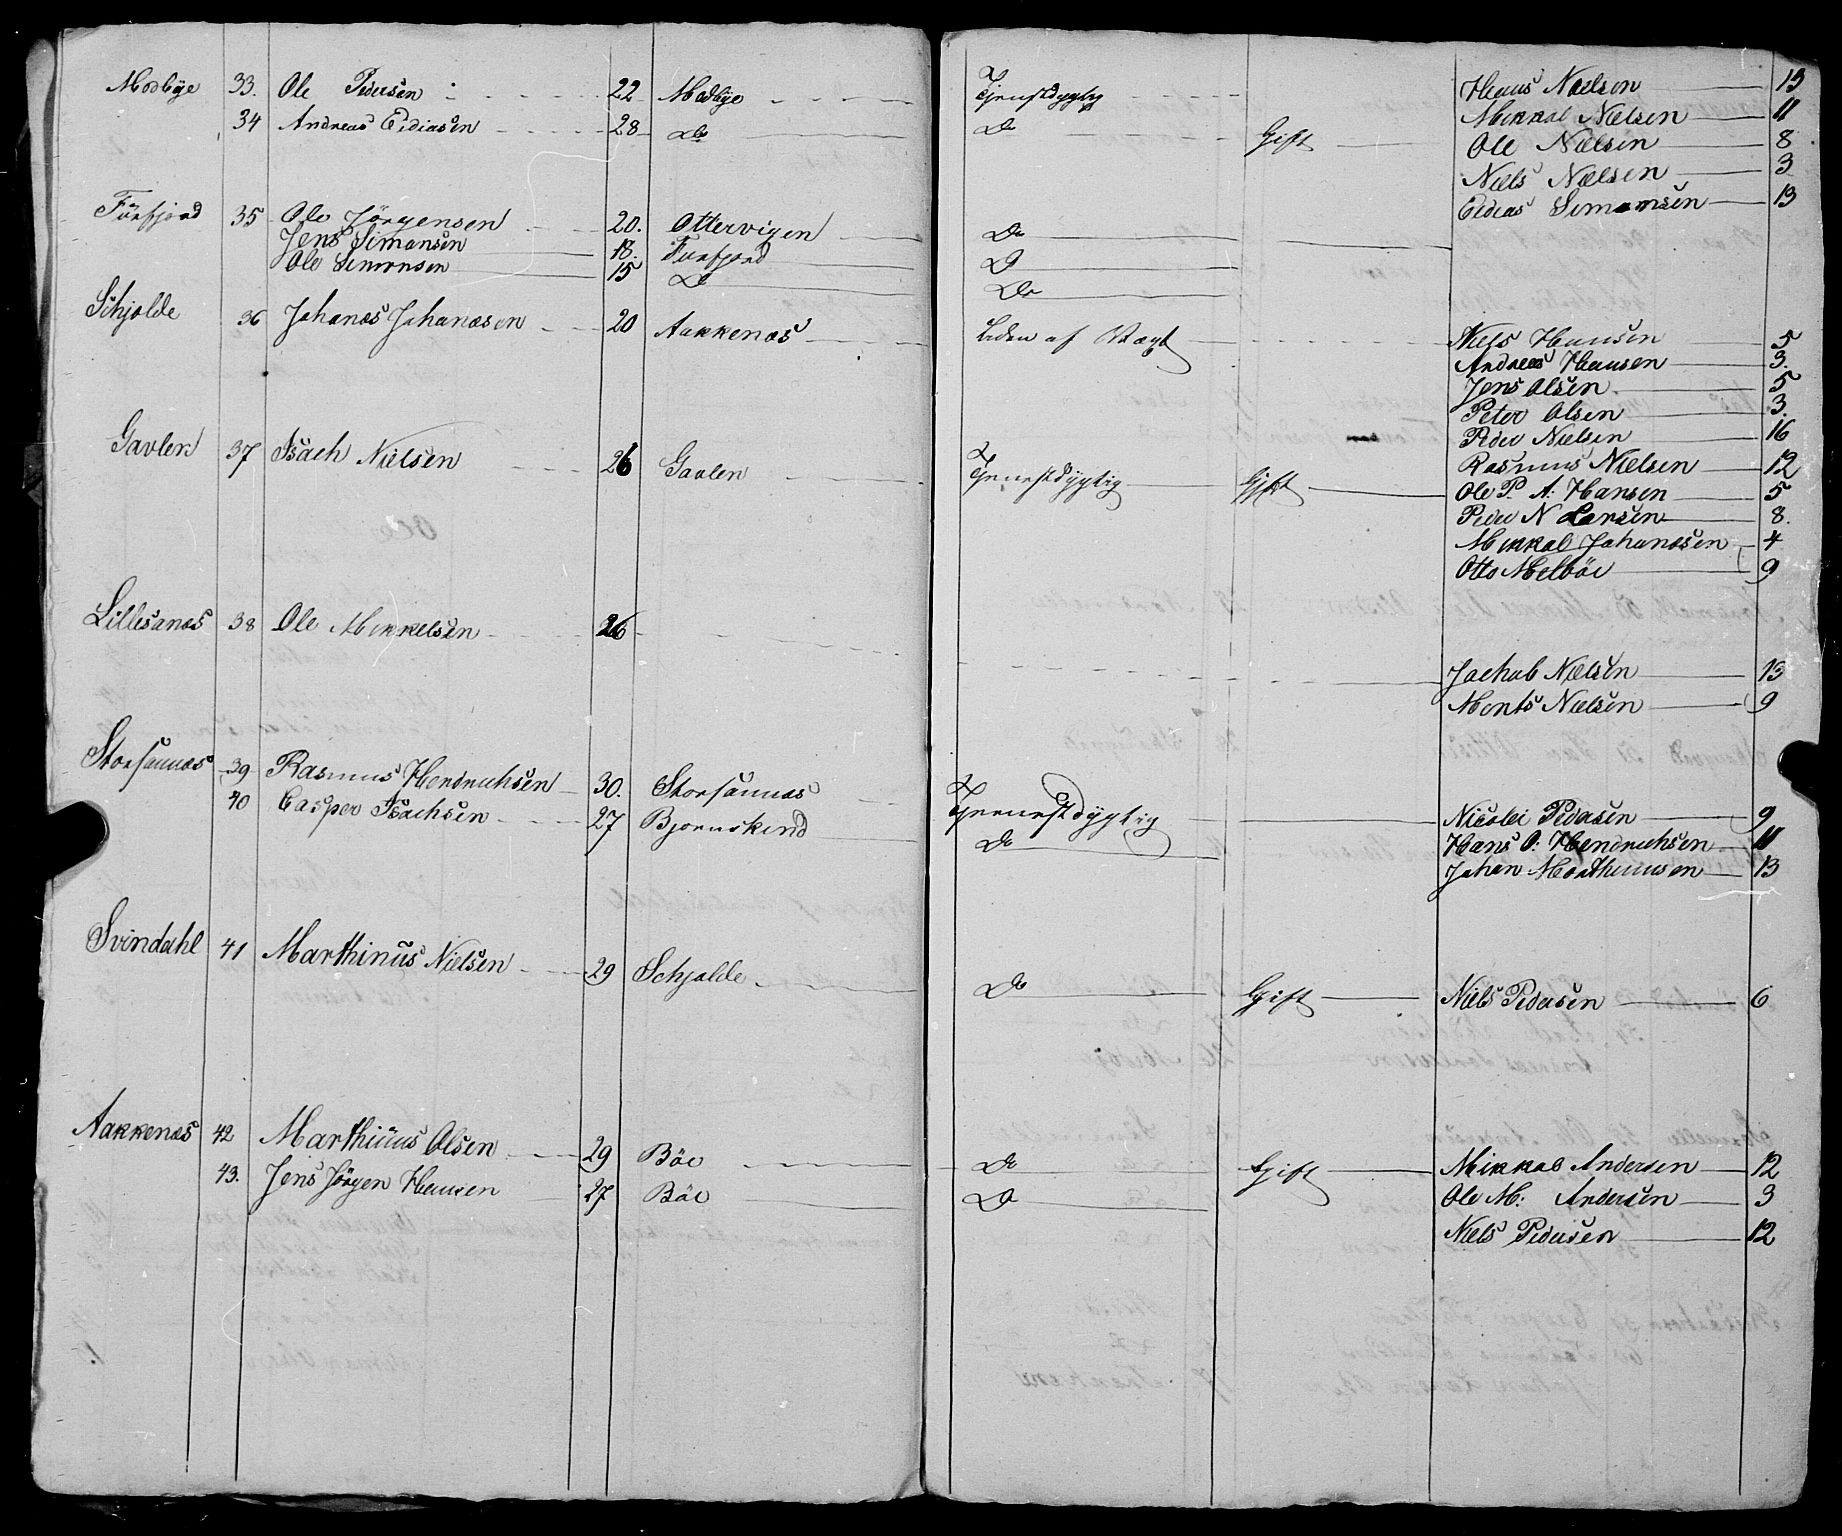 Modbye 33. Ole Pedersen 22 Modbye Tjenestdygtig Hans Nielsen 13
34 Andreas Ediasen 28 Do Do Gift Mikkal Nielsen 11
Ole Nielsen 8
Niels Nielsen 3
Edias Simonsen 13
Fürfjord 35 Ole Jörgensen 20. Ottervigen Do
Jens Simonsen 18. Furfjord Do
Ole Simonsen 15 Do Do
Schjolde 36 Johanes Johanesen 20 Aakkenæs Liden af Vægt Niels Hansen 5
Andreas Hansen 3.
Jens Olsen 5
Peter Olsen 3.
Peder Nielsen 16
Gavlen 37 Isach Nielsen 26 Gavlen Tjenestdygtig Gift Rasmus Nielsen 12
Ole P. A: Hansen 5
Peder N Larsen 8.
Mikkal Johanesen 4
Otto Melböe 9
Lillesanæs 38 Ole Mikkelsen 26
Jachob Nielsen 13
Monts Nielsen 9
Storsannæs 39 Rasmus Hendrichsen 30. Storsannæs Tjenestdygtig Nicolei Pedersen 9
40 Casper Isachsen 27 Bjornskind Do Hans O: Hendrichsen 11
Johan Marthinusen 13
Svindahl 41 Marthinüs Nielsen 29 Schjolde Do Gift Niels Pedersen 6
Aakkenæs 42 Marthinüs Olsen 29 Böe Do Gift Mikkal Andersen 12
43. Jens Jörgen Hansen 27 Böe Do Ole M: Andersen 3
Niels Pedersen 12